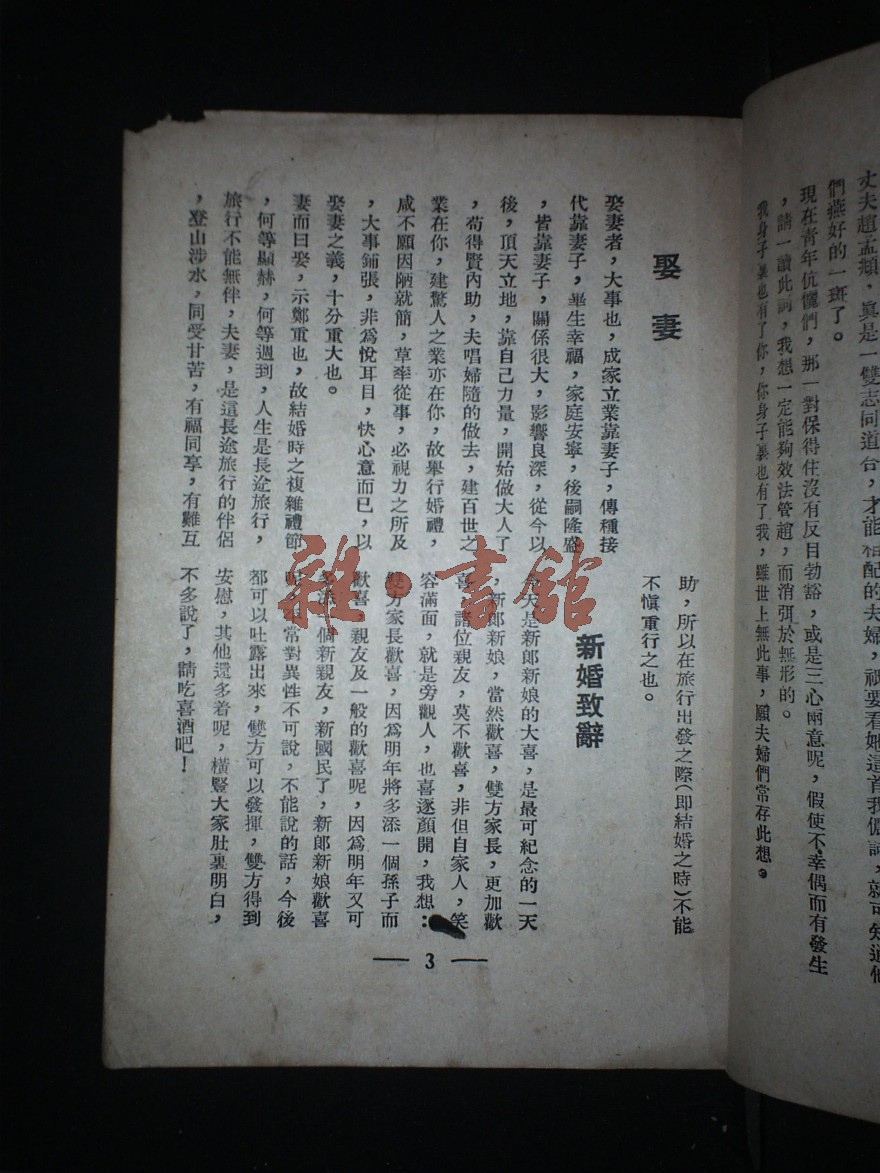 丈夫趙孟頫，眞是一雙志同道合，才能相配的夫婦，祇要看她這首我儂詞，就可知道他
們燕好的一斑了。
現在青年伉儷們，那一對保得住沒有反目勃谿，或是三心兩意呢，假使不幸偶而有發生
，請一讀此詞，我想一定能夠效法管趙，而消弭於無形的。
我身子裏也有了你，你身子裏也有了我，雖世上無此事，願夫婦們常存此想。
娶妻
娶妻者，大事也，成家立業靠妻子，傳種接
代靠妻子，畢生幸福，家庭安寧，後嗣隆盛
，皆靠妻子，關係很大，影響良深，從今以
後，頂天立地，靠自己力量，開始做大人了
，苟得賢內助，夫唱婦隨的做去，建百世之
業在你，建驚人之業亦在你，故舉行婚禮，
咸不願因陋就簡，草率從事，必視力之所及
，大事鋪張，非爲悅耳目，快心意而已，以
娶妻之義，十分重大也。
妻而曰娶，示鄭重也，故結婚時之複雜禮節
，何等顯赫，何等週到，人生是長途旅行，
旅行不能無伴，夫妻，是這長途旅行的伴侶
，登山涉水，同受甘苦，有福同享，有難互
助，所以在旅行出發之際（卽結婚之時）不能
不愼重行之也。
新婚致辭
今天是新郎新娘的大喜，是最可紀念的一天
，新郎新娘，當然歡喜，雙方家長，更加歡
喜，諸位親友，莫不歡喜，非但自家人，笑
容滿面，就是旁觀人，也喜逐顏開，我想：
雙方家長歡喜，因爲明年將多添一個孫子而
歡喜，親友及一般的歡喜呢，因爲明年又可
多添一個新親友，新國民了，新郎新娘歡喜
呢，平常對異性不可說，不能說的話，今後
都可以吐露出來，雙方可以發揮，雙方得到
安慰，其他還多着呢，橫豎大家肚裏明白，
不多說了，請吃喜酒吧！
— 3 —
雜·書館